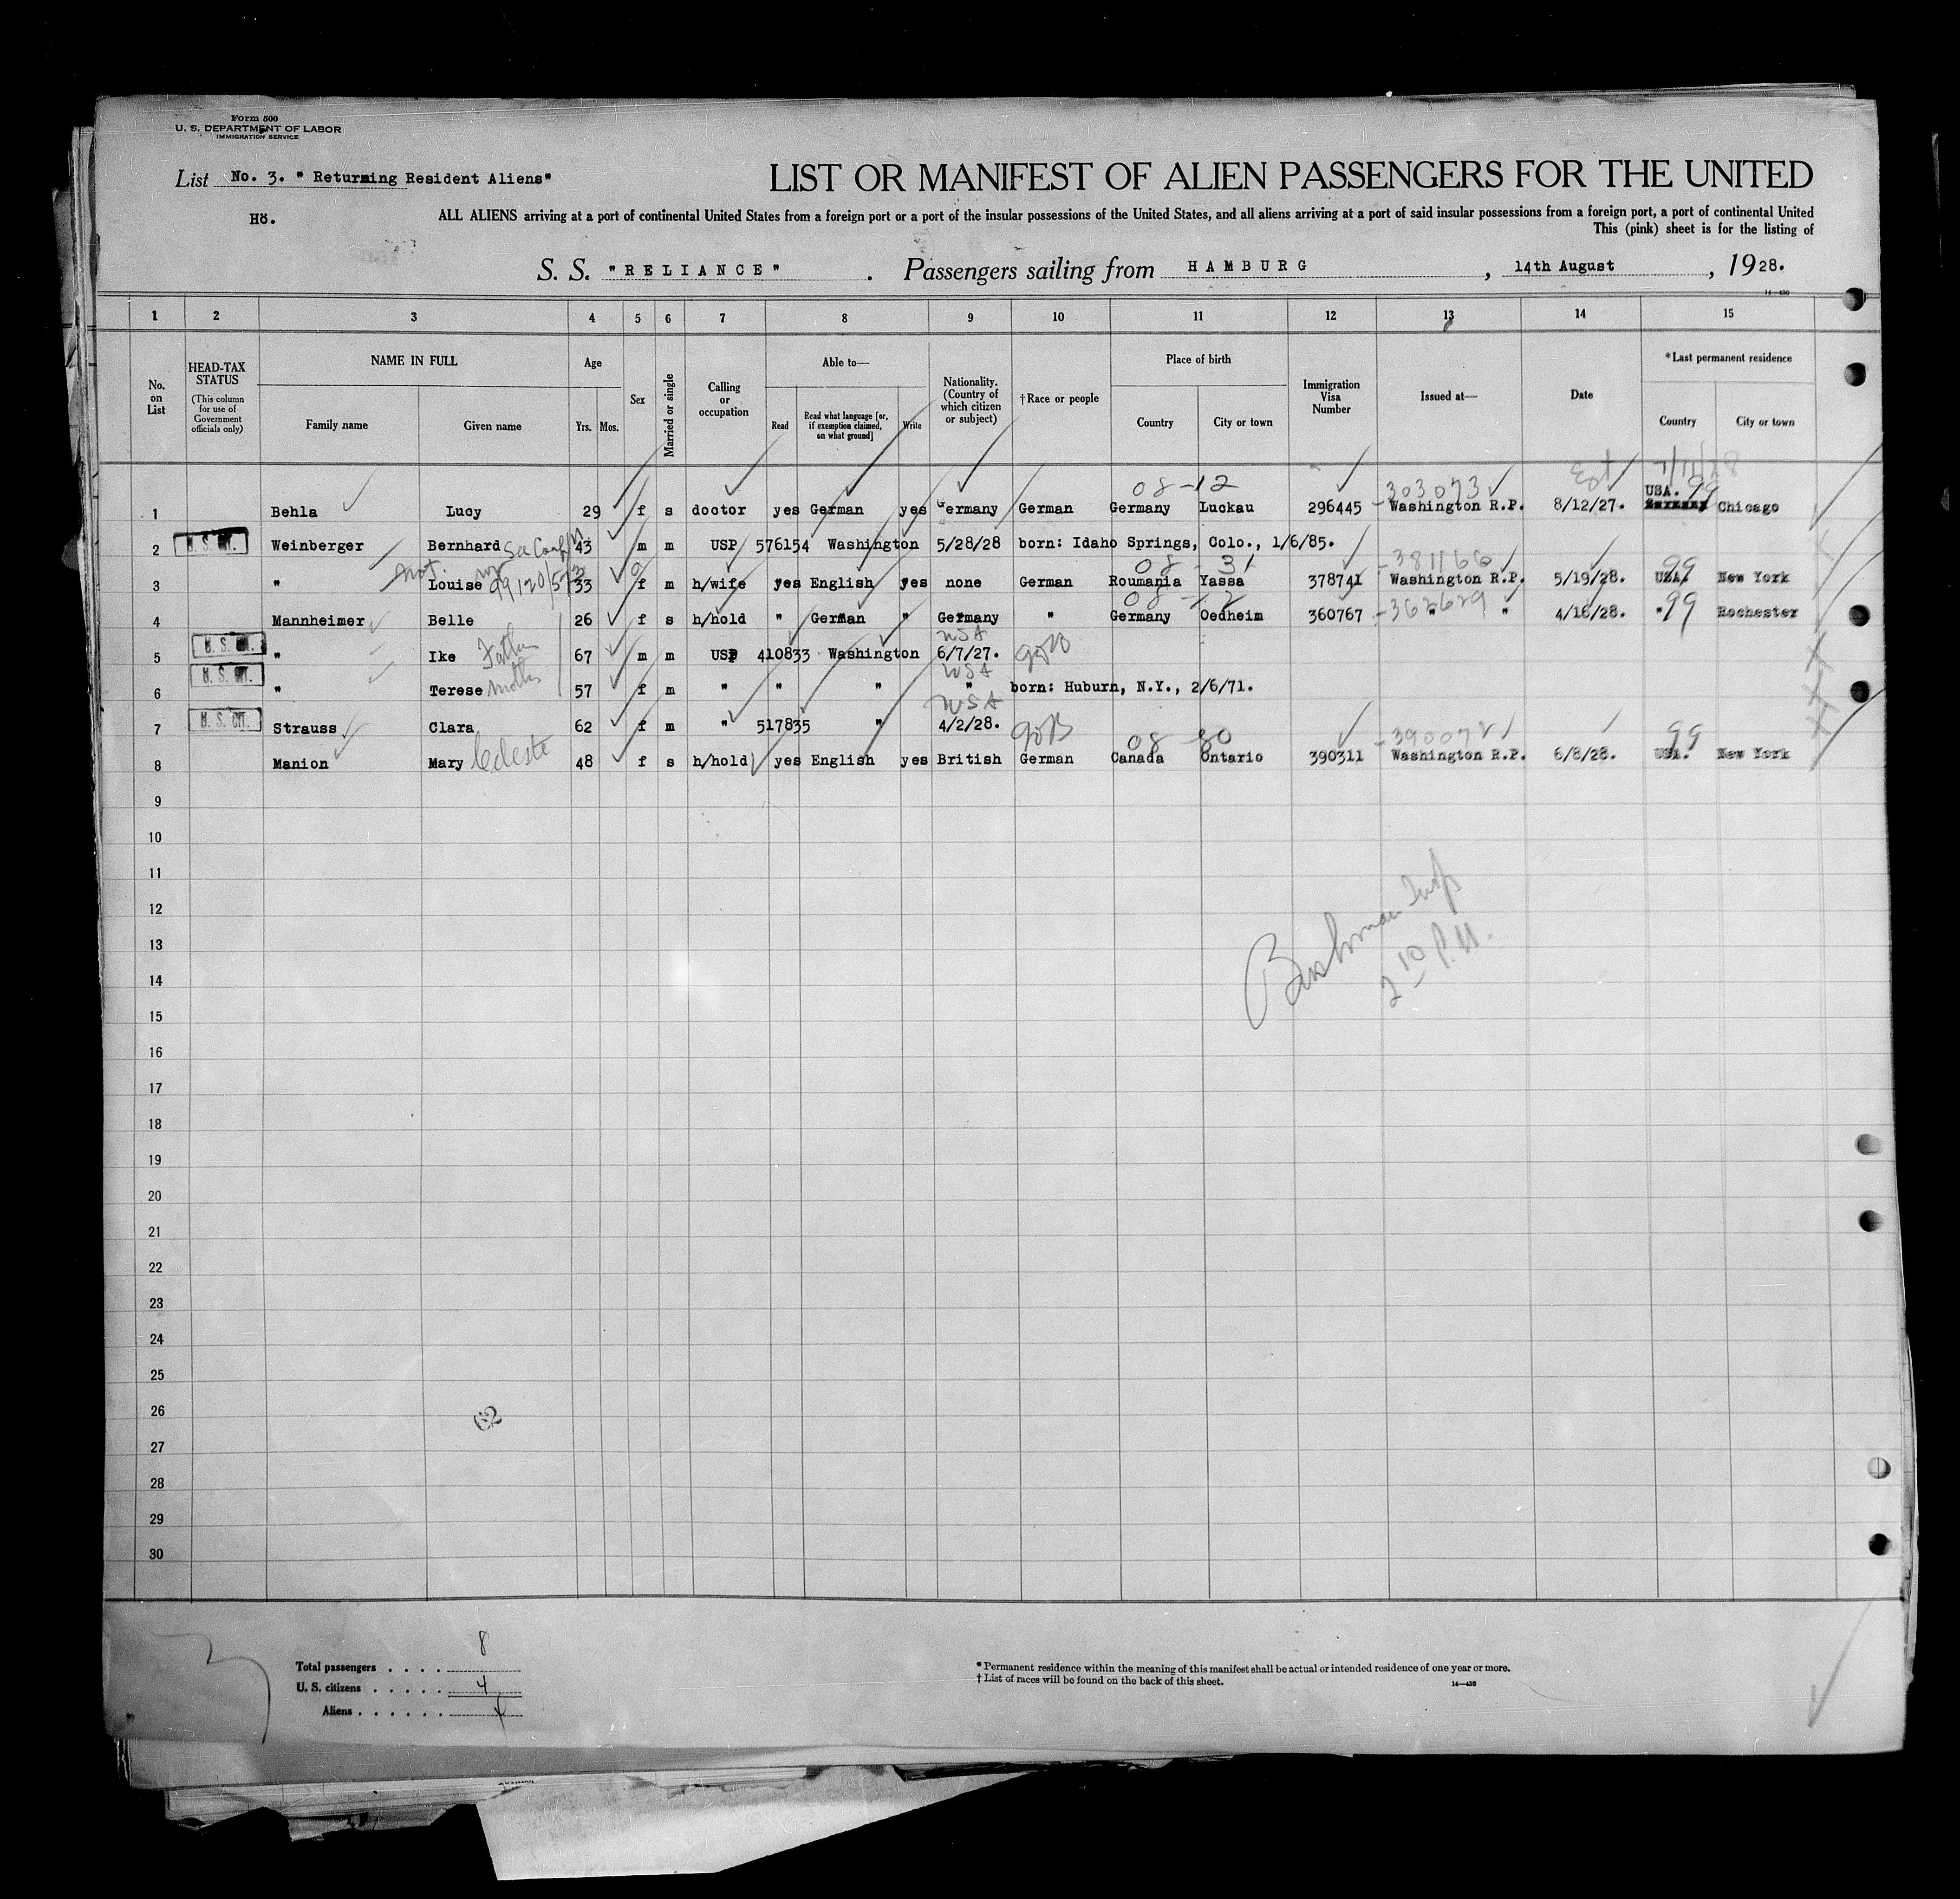 Form 500
U. S. DEPARTMENT OF LABOR
IMMIGRATION SERVICE
List No. 3. " Returning Resident Aliens"
LIST OR MANIFEST OF ALIEN PASSENGERS FOR THE UNITED
Hö.
ALL ALIENS arriving at a port of continental United States from a foreign port or a port of the insular possessions of the United States, and all aliens arriving at a port of said insular possessions from a foreign port, a port of continental United
This (pink) sheet is for the listing of
S. S. "RELIANCE" . Passengers sailing from HAMBURG , 14th August , 1928.
14—430
1 2 3 4 5 6 7 8 9 10 11 12 13 14 15
No. on List
HEAD-TAX STATUS (This column for use of Government officials only)
NAME IN FULL
Family name Given name
Age
Yrs. Mos.
Sex
Married or single
Calling or occupation
Able to—
Read Read what language [or, if exemption claimed, on what ground] Write
Nationality. (Country of which citizen or subject)
†Race or people
Place of birth
Country City or town
Immigration Visa Number
Issued at—
Date
*Last permanent residence
Country City or town
08-12 303073 Ext
1 Behla Lucy 29 f s doctor yes German yes Germany German Germany Luckau 296445 Washington R.P. 8/12/27. USA. 99 Chicago
2 U.S. CIT. Weinberger Bernhard 43 m m USP 576154 Washington 5/28/28 born: Idaho Springs, Colo., 1/6/85.
08 - 31 381166
3 " Louise 99120/573 33 f m h/wife yes English yes none German Roumania Yassa 378741 Washington R.P. 5/19/28. USA. 99 New York
08 - 12 362629
4 Mannheimer Belle 26 f s h/hold " German " Germany " Germany Oedheim 360767 " " 4/16/28. " 99 Rochester
USA
5 U. S. CIT. " Ike Father 67 m m USP 410833 Washington 6/7/27.
USA
6 U. S. CIT. " Terese Mother 57 f m " " " " born: Huburn, N.Y., 2/6/71.
USA
7 U. S. CIT. Strauss Clara 62 f m " 517835 " 4/2/28.
08 80 390072 99
8 Manion Mary Celeste 48 f s h/hold yes English yes British German Canada Ontario 390311 Washington R.P. 6/8/28. USA. New York
9
10
11
12
13
14
15
16
17
18
19
20
21
22
23
24
25
26
27
28
29
30
Bushman Insp
2 10 P.M.
62
Total passengers . . . . 8
U. S. citizens . . . . . 4
Aliens . . . . . . 4
* Permanent residence within the meaning of this manifest shall be actual or intended residence of one year or more.
† List of races will be found on the back of this sheet.
14—430